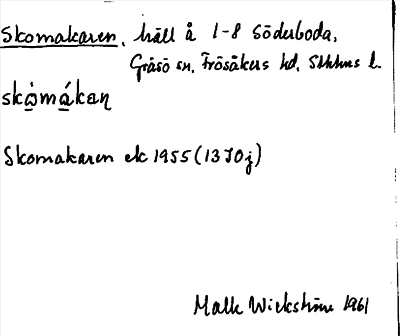 Skomakaren, häll å 1-8 Söderboda,
Gräsö sn, Frösåkers hd, Sthlms l.
skòmákaṇ
Skomakaren ek 1955 (13 I 0 j)
Malte Wickström 1961